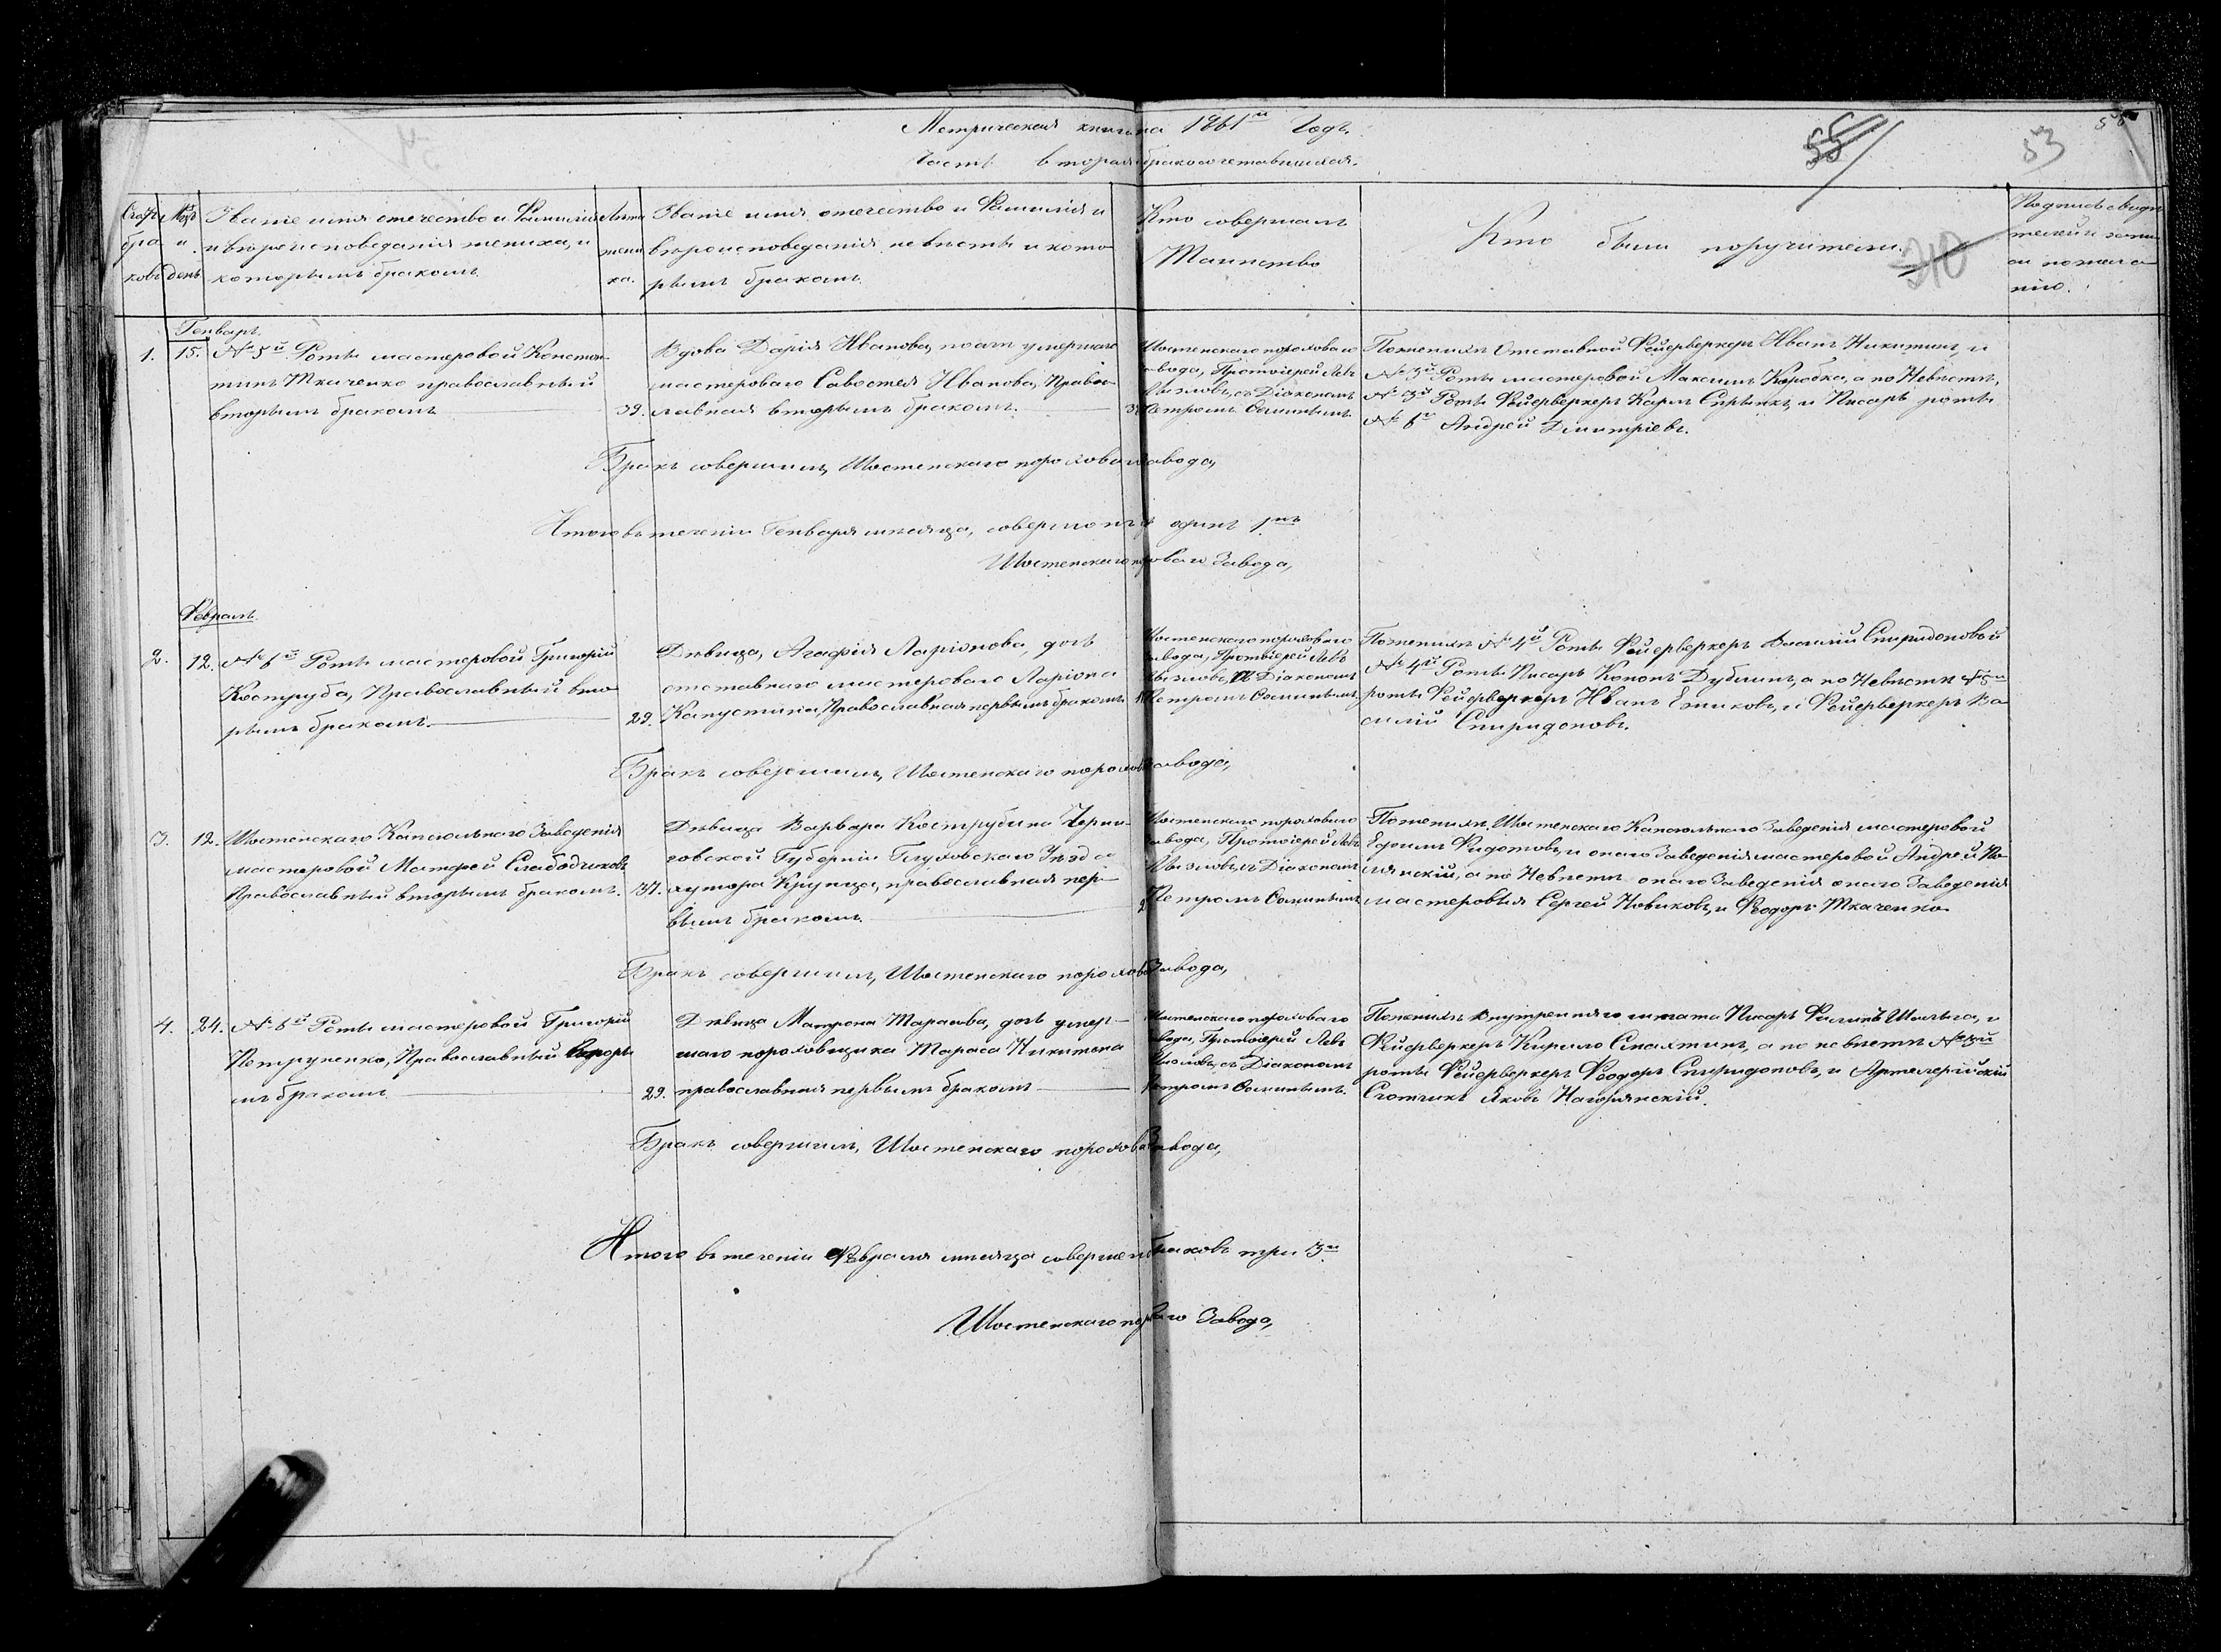 Метрическая книга на 1861й Годъ.
Часть вторая бракосочетавшихся.
55
53
Счетъ браковъ
Мѣсяцъ и день
Званіе имя отечество и Фамилія
и вѣроисповеданія жениха, и
которымъ бракомъ
Лѣта
жени
ха.
Званіе имя, отечество и Фамилія и
вѣроисповеданія невѣсты и кото
рымъ бракомъ.
Кто совершалъ
Таинство
Кто были поручители.
310
Подпись свидѣ
телей
по жела
нію.
Генварь.
1.
15.
№ 5й Роты мастеровой Констан
тинъ Ткаченко православный
вторымъ бракомъ
39.
Вдова Дарія Иванова, после умершаго
мастероваго Савостея Иванова, Правос
лавная вторымъ бракомъ.
Шостенскаго пороховаго
завода, Протоіерей Левъ
съ Діакономъ
Петромъ
Поженихѣ Отставной Фейерверкеръ Иванъ Никитинъ, и
№ 3й Роты мастеровой Максимъ Коробка, а по Невѣстѣ,
№ 3й Роты Фейерверкеръ Карпъ и Писарь роты
№ 6й Андрей Дмитріевъ.
Бракъ совершилъ, Шостенскаго пороховаго завода,
Итого въ теченіи Генваря мѣсяца, совершонъ одинъ 1нъ
Шостенскаго пороховаго Завода,
Февраль.
2.
12.
№ 6й Роты мастеровой Григорій
Коструба, Православный вто
рымъ бракомъ.
29.
Дѣвица, Агафія Ларіонова, дочь
отставнаго мастероваго Ларіона
Капустина, Православная первымъ бракомъ
Шостенскаго пороховаго
завода, Протоіерей Левъ
съ Діакономъ
Петромъ
Поженихѣ № 4й Роты Фейерверкеръ Василій Спиридоновой
№ 4й Роты Писарь Кононъ Дублинъ, а по Невѣстѣ № 5й
роты Фейерверкеръ Иванъ Ежиковъ, и Фейерверкеръ Ва
силій Спиридоновъ.
Бракъ совершилъ, Шостенскаго пороховаго завода,
3.
12.
Шостенскаго Капсюльнаго Заведенія
мастеровой Матфей Слабодчиковъ
Православный вторымъ бракомъ.
37.
Дѣвица Варвара Кострубина Черни-
говской Губерніи Глуховскаго Уѣзда
хутора Крупца, православная пер-
вымъ бракомъ.
Шостенскаго пороховаго
завода, Протоіерей Левъ
съ Діакономъ
Петромъ
Поженихѣ, Шостенскаго Капсюльнаго Заведенія мастеровой
Ефимъ Федотовъ, и онаго Заведенія мастеровой Андрей По
лянскій, а по Невѣстѣ онаго Заведенія онаго Заведенія
мастеровыя Сергей Новиковъ, и Феодоръ Ткаченко
Бракъ совершилъ, Шостенскаго пороховаго Завода,
4.
24.
№ 6й Роты мастеровой Григорій
Петруненко, Православный вторы
мъ бракомъ
29.
Дѣвица Матрона Тарасова, дочь умер-
шаго пороховщика Тараса Никитина
православная первымъ бракомъ
Шостенскаго пороховаго
завода, Протоіерей Левъ
съ Діакономъ
Петромъ
Поженихѣ Внутренняго штата Писарь Филипъ Шолыга, и
Фейерверкеръ Кирило Смахтинъ, а по невѣстѣ № 3й
роты Фейерверкеръ Феодоръ Спиридоновъ, и Артелерійскій
Счотчикъ Яковъ Нагорянскій.
Бракъ совершилъ, Шостенскаго пороховаго Завода,
Итого въ теченіи Февраля мѣсяца совершено браковъ три 3и
Шостенскаго пороховаго Завода,